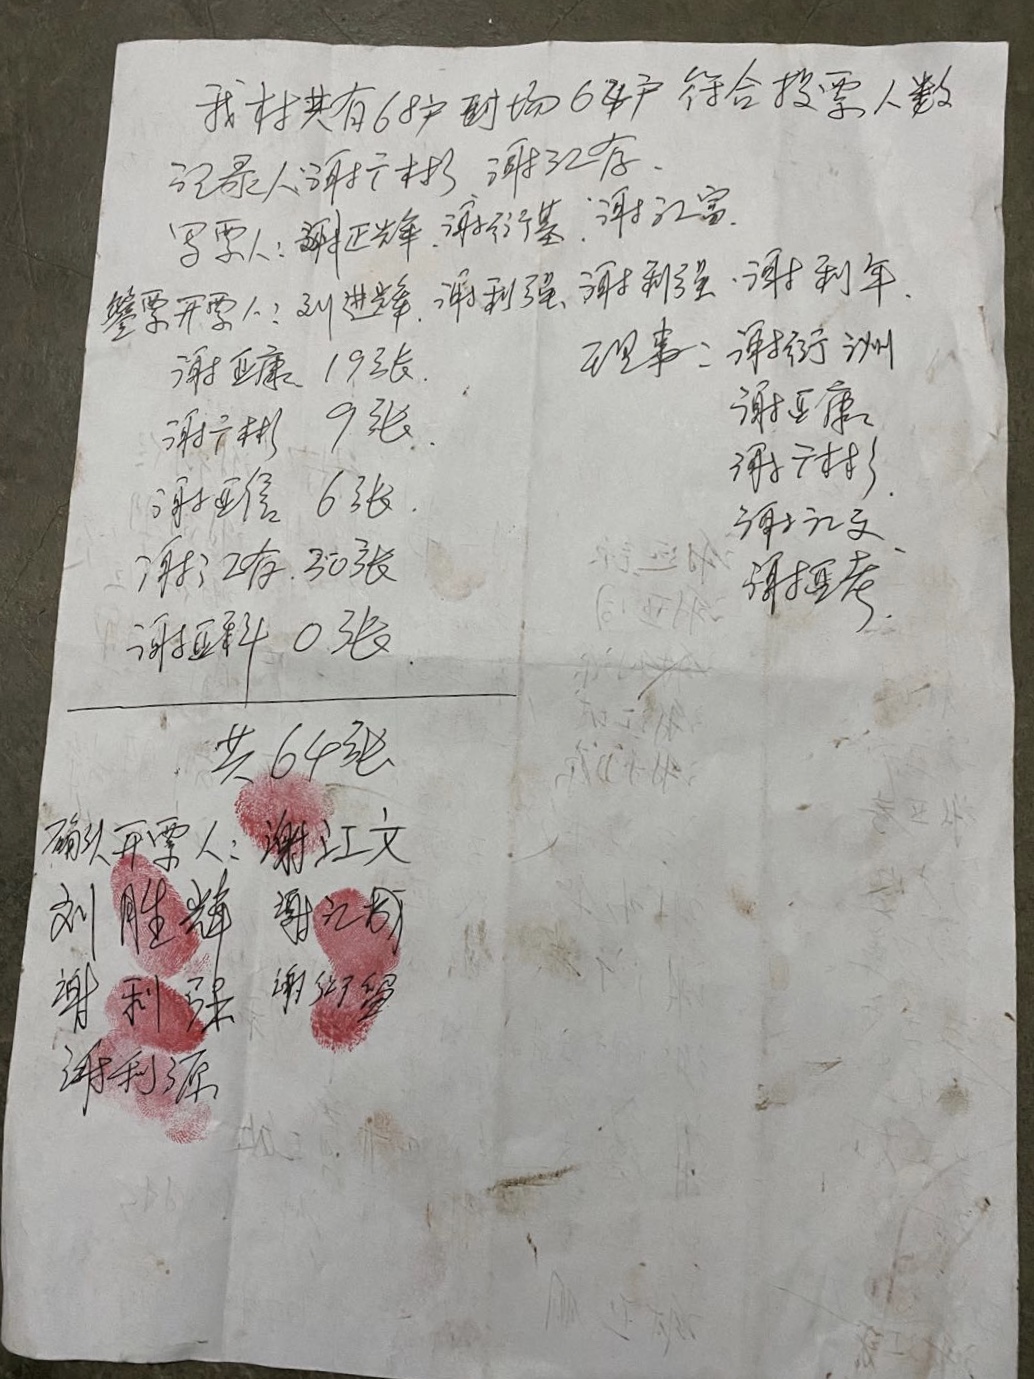 我村共有68户到场64户符合投票人数
记录人谢广彬 谢江存.
写票人:谢正辉.谢衍基.谢江富.
鉴票开票人:刘进辉.谢利强、谢利强.谢利年.
谢亚康 19张.
谢广彬 9张.
谢亚信 6张.
谢江存.30张
谢亚科 0张.
共64张
理事:谢衍洲
谢亚康
谢广彬.
谢江文、
谢亚考.
确认开票人:谢江文
刘胜辉 谢江
谢利强 谢衍
谢利源